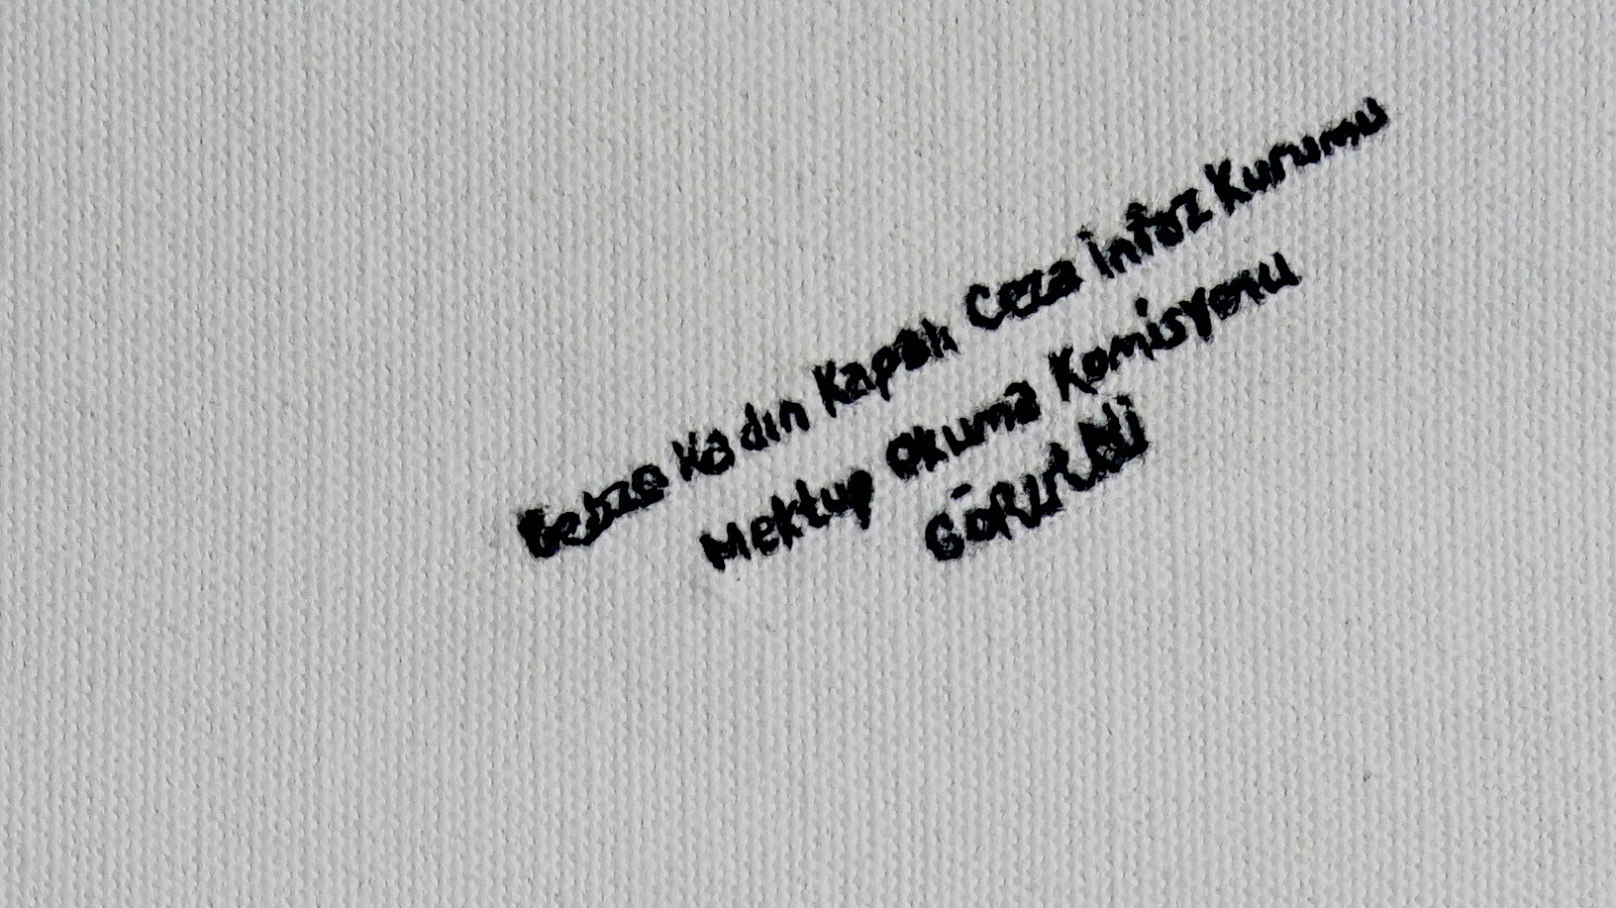 Gebze Kadın Kapalı Ceza İnfaz Kurumu
Mektup Okuma Komisyonu
GÖRÜLDÜ